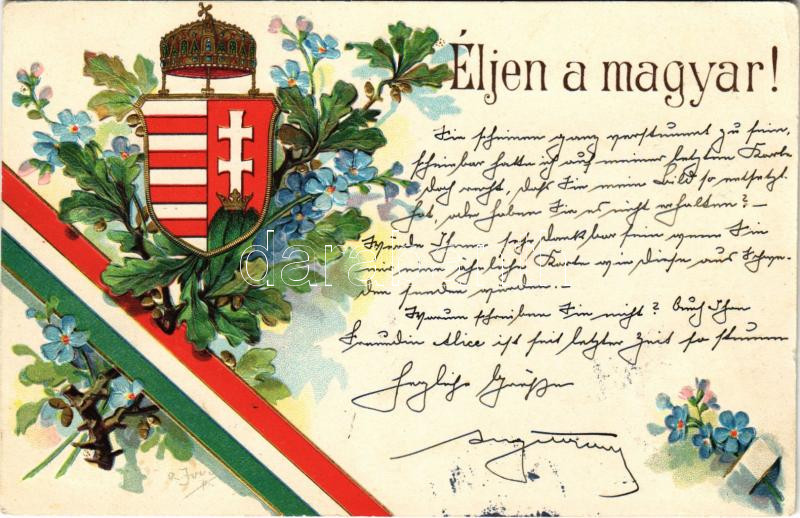 Éljen a magyar!
Sie scheinen ganz verstummt zu sein,
scheinbar hatte ich auf meiner letzten Karte
doch recht, daß Sie mein Bild so entsetzt
hat, oder haben Sie es nicht erhalten? –
Würde Ihnen sehr dankbar sein wenn Sie
mir eine ähnliche Karte wie diese aus Schwe-
den senden würden.
Warum schreiben Sie nicht? Auch Ihre
Freundin Alice ist seit letzter Zeit so stumm
Herzliche Grüße
darabanth